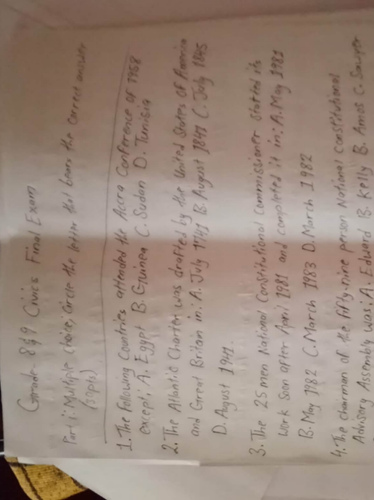 Grade 8&9 Civics Final Exam
Part i: Multiple choice, Circle the letter that bears the correct answer
(30pts)
1. The following Countries attended the Accra Conference of 1958
except; A. Egypt B. Guinea C. Sudan D. Tunisia
2. The Atlantic Charter was drafted by the United States of America
and Great Britain in: A. July 1941 B. August 1841 C. July 1845
D. August 1941
3. The 25 men National Constitutional Commissioner started its
work soon after April 1981 and completed it in: A. May 1981
B. May 1982 C. March 1983 D. March 1982
4. The chairman of the fifty-nine person National Constitutional
Advisory Assembly was: A. Edward B. Kelly B. Amos C. Sawyer